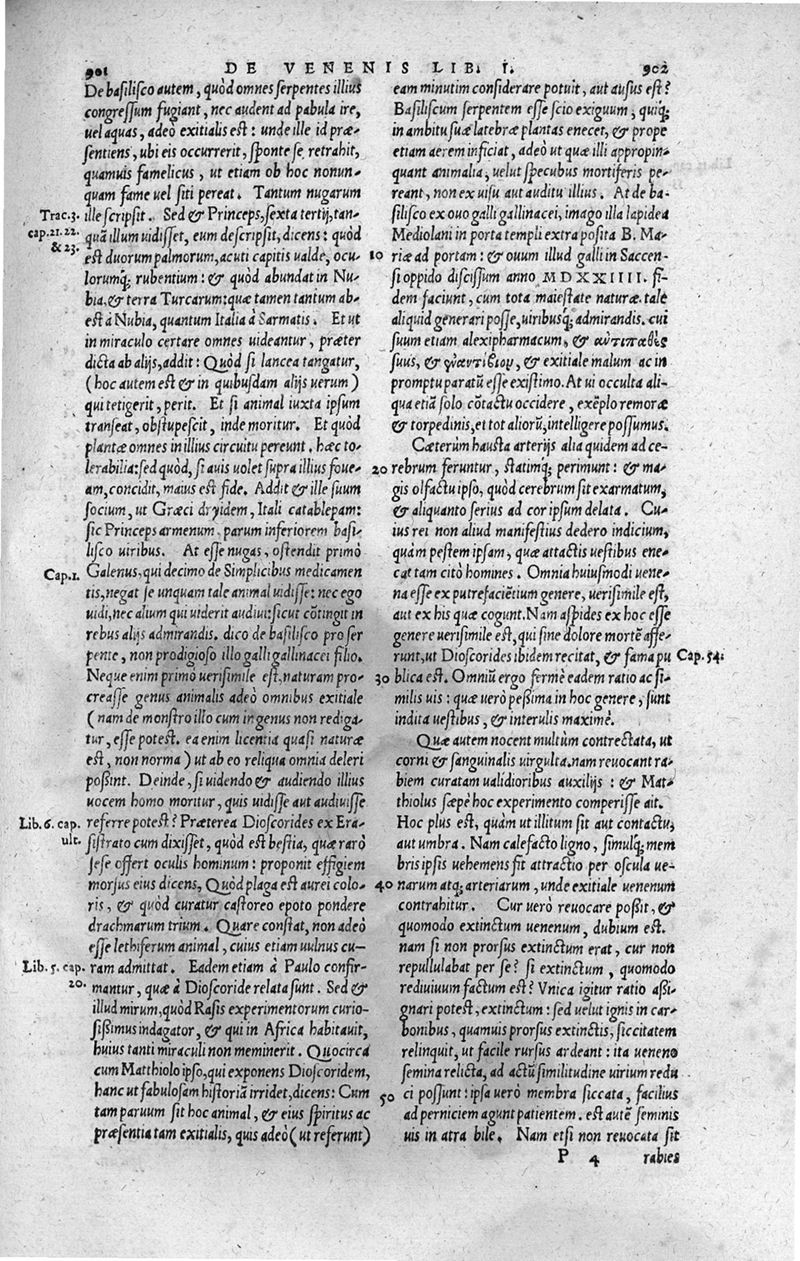 901 DE VENENIS LIB. I. 902
De basilisco autem, quòd omnes serpentes illius
congressum fugiant, nec audent ad pabula ire,
uel aquas, adeò exitialis est: unde ille id præ-
sentiens, ubi eis occurrerit, sponte se retrahit,
quamuis famelicus, ut etiam ob hoc nonun-
quam fame uel siti pereat. Tantum nugarum
Trac. 3. ille scripsit. Sed & Princeps, sexta tertij, tan-
cap. 21. 22. quã illum uidisset, eum descripsit, dicens: quòd
& 23. est duorum palmorum, acuti capitis ualde, ocu-
lorumq́; rubentium: & quòd abundat in Nu-
bia, & terra Turcarum: quæ tamen tantum ab-
est à Nubia, quantum Italia à Sarmatis. Et ut
in miraculo certare omnes uideantur, præter
dicta ab alijs, addit: Quòd si lancea tangatur,
(hoc autem est & in quibusdam alijs uerum)
qui tetigerit, perit. Et si animal iuxta ipsum
transeat, obstupescit, inde moritur. Et quòd
plantæ omnes in illius circuitu pereunt. hæc to-
lerabilia: sed quòd, si auis uolet supra illius foue-
am, concidit, maius est fide. Addit & ille suum
socium, ut Græci dryidem, Itali catablepam:
sic Princeps armenum, parum inferiorem basi-
lisco uiribus. At esse nugas, ostendit primò
Cap. 1. Galenus, qui decimo de Simplicibus medicamen
tis, negat se unquam tale animal uidisse: nec ego
uidi, nec alium qui uiderit audiui: sicut cõtingit in
rebus alijs admirandis. dico de basilisco pro ser
pente, non prodigioso illo galli gallinacei filio.
Neque enim primò uerisimile est, naturam pro-
creasse genus animalis adeò omnibus exitiale
(nam de monstro illo cum in genus non rediga-
tur, esse potest. ea enim licentia quasi naturæ
est, non norma) ut ab eo reliqua omnia deleri
possint. Deinde, si uidendo & audiendo illius
uocem homo moritur, quis uidisse aut audiuisse
Lib. 6. cap. referre potest? Præterea Dioscorides ex Era-
ult. sistrato cum dixisset, quòd est bestia, quæ rarò
sese offert oculis hominum: proponit effigiem
morsus eius dicens, Quòd plaga est aurei colo-
ris, & quòd curatur castoreo epoto pondere
drachmarum trium. Quare constat, non adeò
esse lethiferum animal, cuius etiam uulnus cu-
Lib. 5. cap. ram admittat. Eadem etiam à Paulo confir-
20. mantur, quæ à Dioscoride relata sunt. Sed &
illud mirum, quòd Rasis experimentorum curio-
sissimus indagator, & qui in Africa habitauit,
huius tanti miraculi non meminerit. Quocirca
cum Matthiolo ipso, qui exponens Dioscoridem,
hanc ut fabulosam historiã irridet, dicens: Cum
tam paruum sit hoc animal, & eius spiritus ac
præsentia tam exitialis, quis adeò (ut referunt)
eam minutim considerare potuit, aut ausus est?
Basiliscum serpentem esse scio exiguum, quiq́;
in ambitu suæ latebræ plantas enecet, & prope
etiam aerem inficiat, adeò ut quæ illi appropin-
quant animalia, uelut specubus mortiferis pe-
reant, non ex uisu aut auditu illius. At de ba-
silisco ex ouo galli gallinacei, imago illa lapidea
Mediolani in porta templi extra posita B. Ma-
10 riæ ad portam: & ouum illud galli in Saccen-
si oppido discissum anno MDXXIIII. fi-
dem faciunt, cum tota maiestate naturæ tale
aliquid generari posse, uiribusq́; admirandis. cui
suum etiam alexipharmacum, & αὐτιπαθὲς
suus, & & exitiale malum ac in
promptu paratũ esse existimo. At ui occulta ali-
qua etiã solo cõtactu occidere, exẽplo remoræ
& torpedinis, et tot aliorũ, intelligere possumus.
Cæterùm hausta arterijs alia quidem ad ce-
20 rebrum feruntur, statimq́; perimunt: & ma-
gis olfactu ipso, quòd cerebrum sit exarmatum,
& aliquanto serius ad cor ipsum delata. Cu-
ius rei non aliud manifestius dedero indicium,
quàm pestem ipsam, quæ attactis uestibus ene-
cat tam citò homines. Omnia huiusmodi uene-
na esse ex putrefaciẽtium genere, uerisimile est,
aut ex his quæ cogunt. Nam aspides ex hoc esse
genere uerisimile est, qui sine dolore mortẽ affe-
runt, ut Dioscorides ibidem recitat, & fama pu Cap. 54.
30 blica est. Omniũ ergo fermè eadem ratio ac si-
milis uis: quæ uerò pessima in hoc genere, sunt
indita uestibus, & interulis maximè.
Quæ autem nocent multùm contrectata, ut
corni & sanguinalis uirgulta. nam reuocant ra-
biem curatam ualidioribus auxilijs: & Mat-
thiolus sæpè hoc experimento comperisse ait.
Hoc plus est, quàm ut illitum sit aut contactu,
aut umbra. Nam calefacto ligno, simulq́; mem
bris ipsis uehemens fit attractio per oscula ue-
40 narum atq́; arteriarum, unde exitiale uenenum
contrahitur. Cur uerò reuocare possit, &
quomodo extinctum uenenum, dubium est.
nam si non prorsus extinctum erat, cur non
repullulabat per se? si extinctum, quomodo
rediuiuum factum est? Vnica igitur ratio assi-
gnari potest, extinctum: sed uelut ignis in car-
bonibus, quamuis prorsus extinctis, siccitatem
relinquit, ut facile rursus ardeant: ita ueneno
semina relicta, ad actũ similitudine uirium redu
50 ci possunt: ipsa uerò membra siccata, facilius
ad perniciem agunt patientem. est autẽ seminis
uis in atra bile. Nam etsi non reuocata sit
P 4 rabies